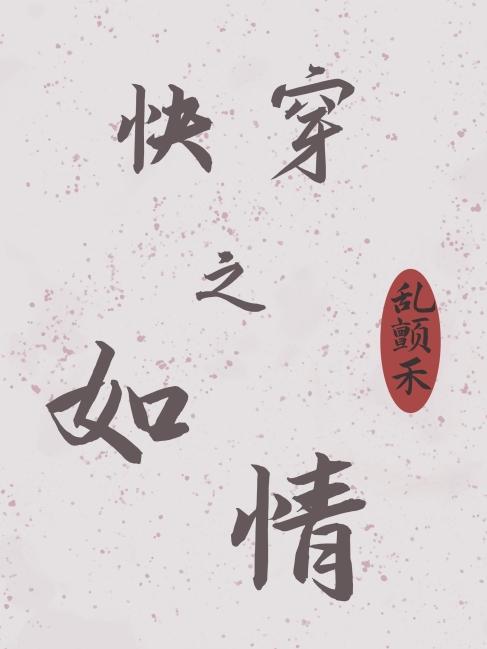 快穿
之
如
情
乱颤禾